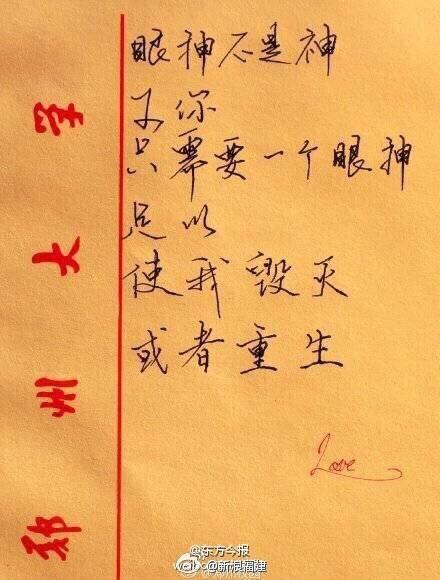 郑州大学
眼神不是神
你
只需要一个眼神
足以
使我毁灭
或者重生
Love
@东方今报
@新浪福建